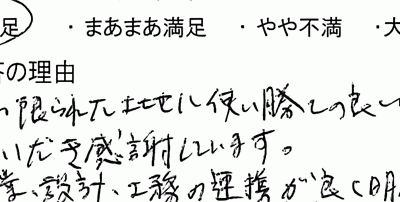 足 ・まあまあ満足 ・やや不満 ・大
答の理由
限られた土地に使い勝手の良い
いただき感謝しています。
営、設計、工務の連携が良く明